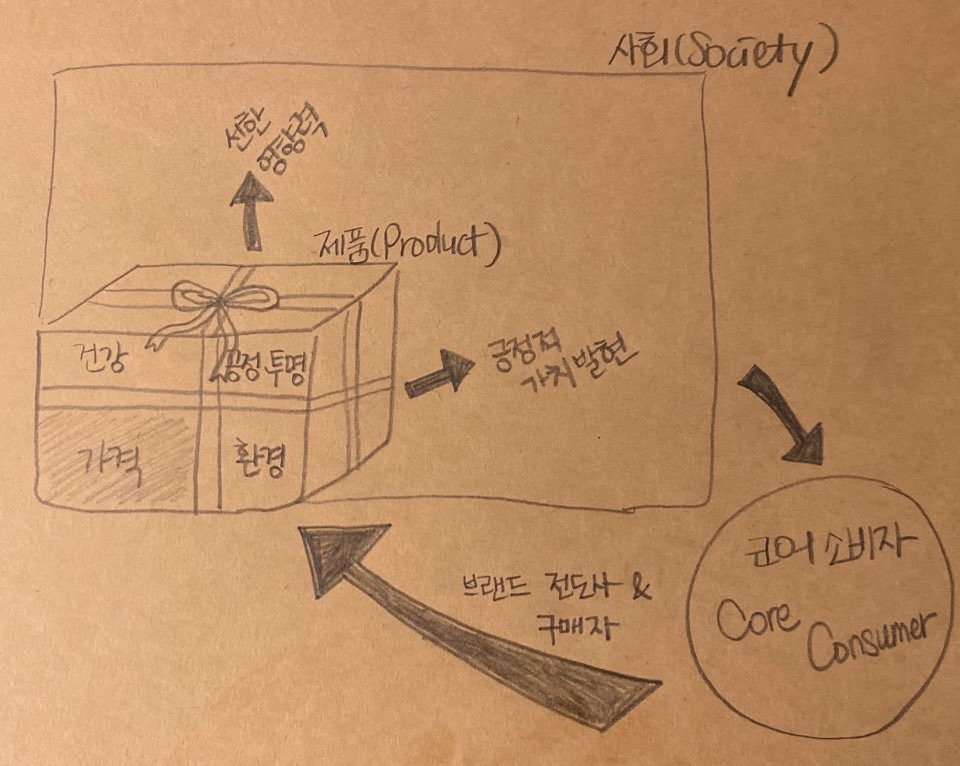 사회(Society)
선한
영향력
제품(Product)
건강
공정투명
가격
환경
긍정적
가치발현
브랜드 전도사 &
구매자
코어 소비자
Core
Consumer